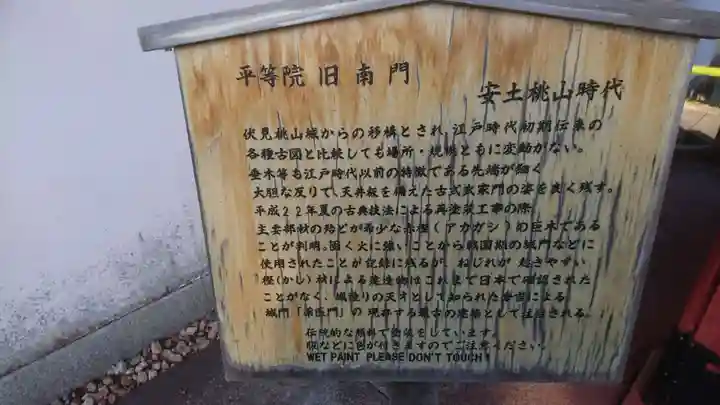 平等院 旧南門 安土桃山時代
伏見桃山城からの移構とされ、江戸時代初期伝来の
各種古図と比較しても場所・規模ともに変動がない。
垂木等も江戸時代以前の特徴である先端が細く
大胆な反りで、天井板を備えた古式武家門の姿を良く残す。
平成22年夏の古典技法による再塗装工事の際、
主要部材の殆どが希少な赤樫(アカガシ)の巨木である
ことが判明。固く火に強いことから戦国期の城門などに
使用されたことが記録に残るが、ねじれが起きやすい
樫(かし)材による建造物はこれまで日本で確認された
ことがなく、城造りの天才として知られた秀吉による
城門「薬医門」の現存する最古の建築として注目される。
伝統的な顔料で塗装をしています。
服などに色が付きますのでご注意ください。
WET PAINT PLEASE DON'T TOUCH!